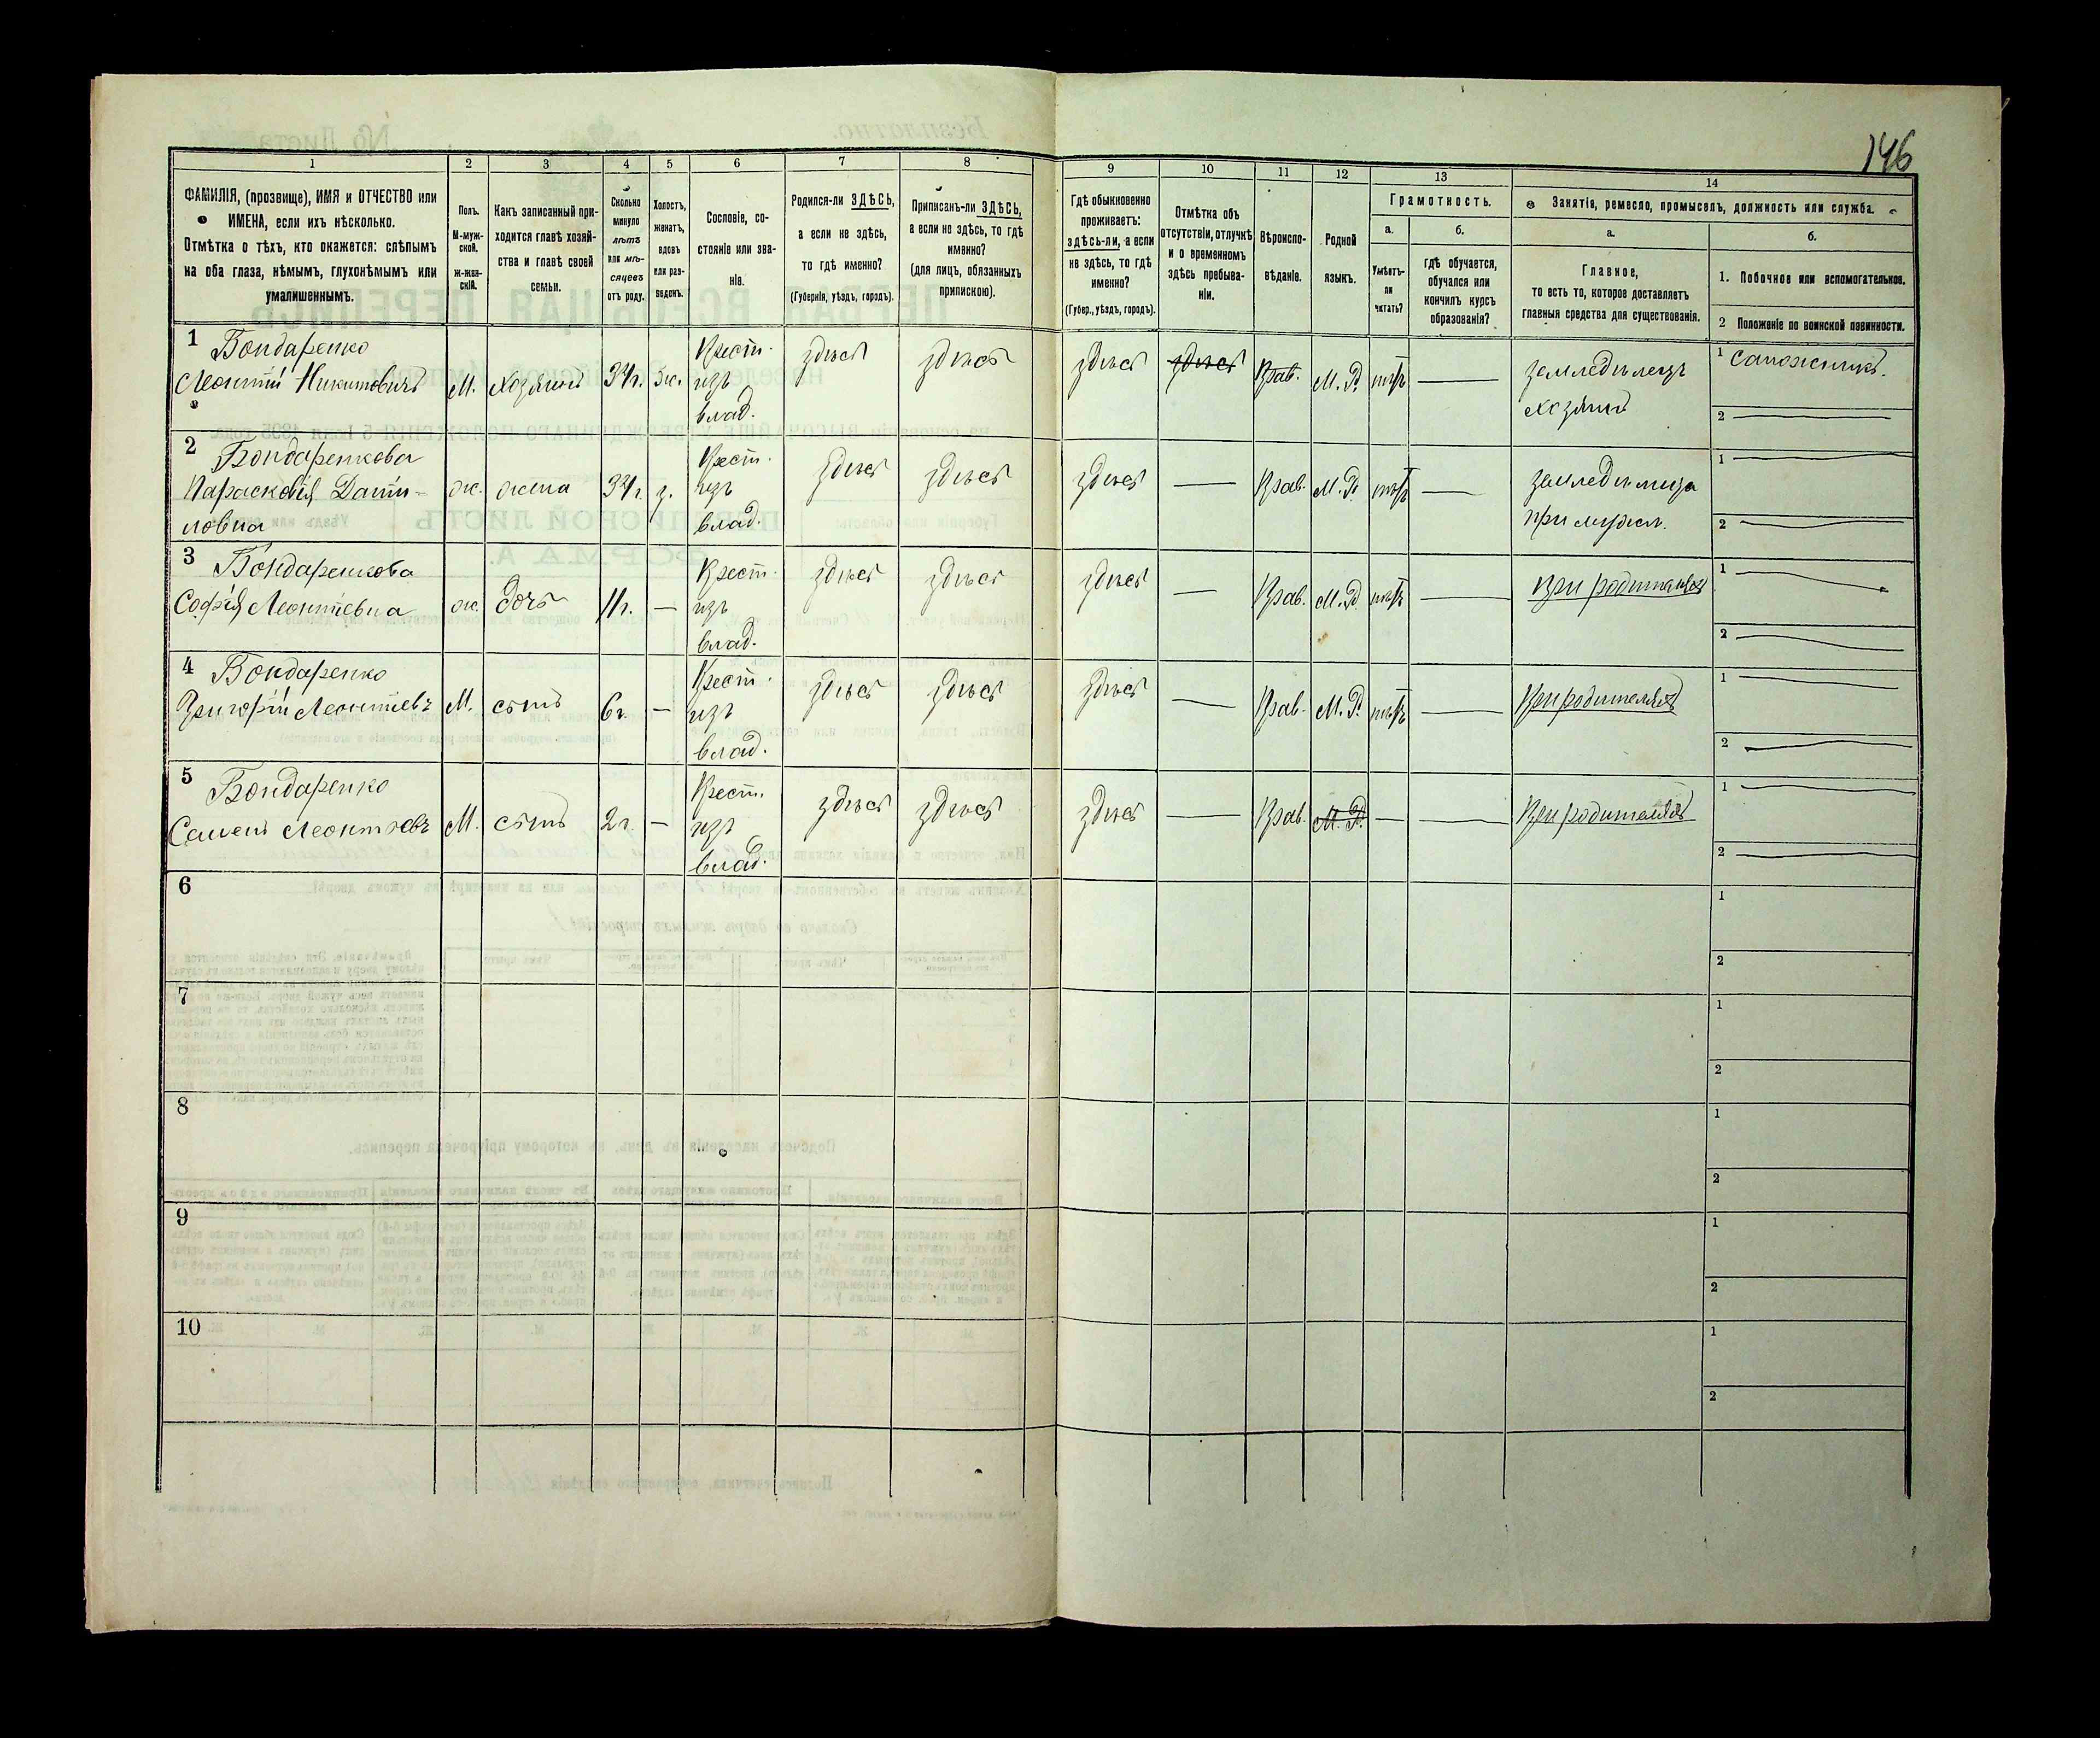 146
1
2
3
4
5
6
7
8
9
10
11
12
13
14
ФАМИЛІЯ, (прозвище), ИМЯ и ОТЧЕСТВО или
ИМЕНА, если ихъ нѣсколько.
Отмѣтка о тѣхъ, кто окажется: слѣпымъ
на оба глаза, нѣмымъ, глухонѣмымъ или
умалишеннымъ.
Полъ.
М-муж-
ской.
ж-жен-
скій.
Какъ записанный при-
ходится главѣ хозяй-
ства и главѣ своей
семьи.
Сколько
минуло
лѣтъ
или мѣ-
сяцевъ
отъ роду.
Холостъ,
женатъ,
вдовъ
или раз-
веденъ.
Сословіе, со-
стояніе или зва-
ніе.
Родился-ли ЗДѢСЬ,
а если не здѣсь,
то гдѣ именно?
(Губернія, уѣздъ, городъ).
Приписанъ-ли ЗДѢСЬ,
а если не здѣсь, то гдѣ
именно?
(для лицъ, обязанныхъ
припискою).
Гдѣ обыкновенно
проживаетъ:
здѣсь-ли, а если
не здѣсь, то гдѣ
именно?
(Губер., уѣздъ, городъ).
Отмѣтка объ
отсутствіи, отлучкѣ
и о временномъ
здѣсь пребыва-
ніи.
Вѣроиспо-
вѣданіе.
Родной
языкъ.
Грамотность.
а.
б.
Умѣетъ-
ли
читать?
гдѣ обучается,
обучался или
кончилъ курсъ
образованія?
Занятіе, ремесло, промыселъ, должность или служба.
а.
б.
Главное,
то есть то, которое доставляетъ
главныя средства для существованія.
1. Побочное или вспомогательное.
2 Положеніе по воинской повинности.
1
Бондаренко
Леонтій Никитовичъ
М.
хозяинъ
34г.
Крест.
изъ
влад.
здѣсь
здѣсь
здѣсь
здѣсь
Прав.
М. Р.
нѣтъ
земледѣлецъ
хозяинъ
1 Сапожникъ.
2
2
Бондаренкова
Парасковія
новна
ж.
жена
з.
Крест.
изъ
влад.
здѣсь
здѣсь
здѣсь
Прав.
М. Р.
нѣтъ
при мужѣ.
1
2
3
Бондаренкова
Софія Леонтіевна
ж.
дочь
11г.
Крест.
изъ
влад.
здѣсь
здѣсь
здѣсь
Прав.
М. Р.
нѣтъ
При родителяхъ
1
2
4
Бондаренко
Григорій Леонтіевъ
М.
сынъ
6г.
Крест.
изъ
влад.
здѣсь
здѣсь
здѣсь
Прав.
М. Р.
нѣтъ
При родителяхъ
1
2
5
Бондаренко
Семенъ Леонтіевъ
М.
сынъ
2г.
Крест.
изъ
влад.
здѣсь
здѣсь
здѣсь
Прав.
М. Р.
При родителяхъ
1
2
6
1
2
7
1
2
8
1
2
9
1
2
10
1
2